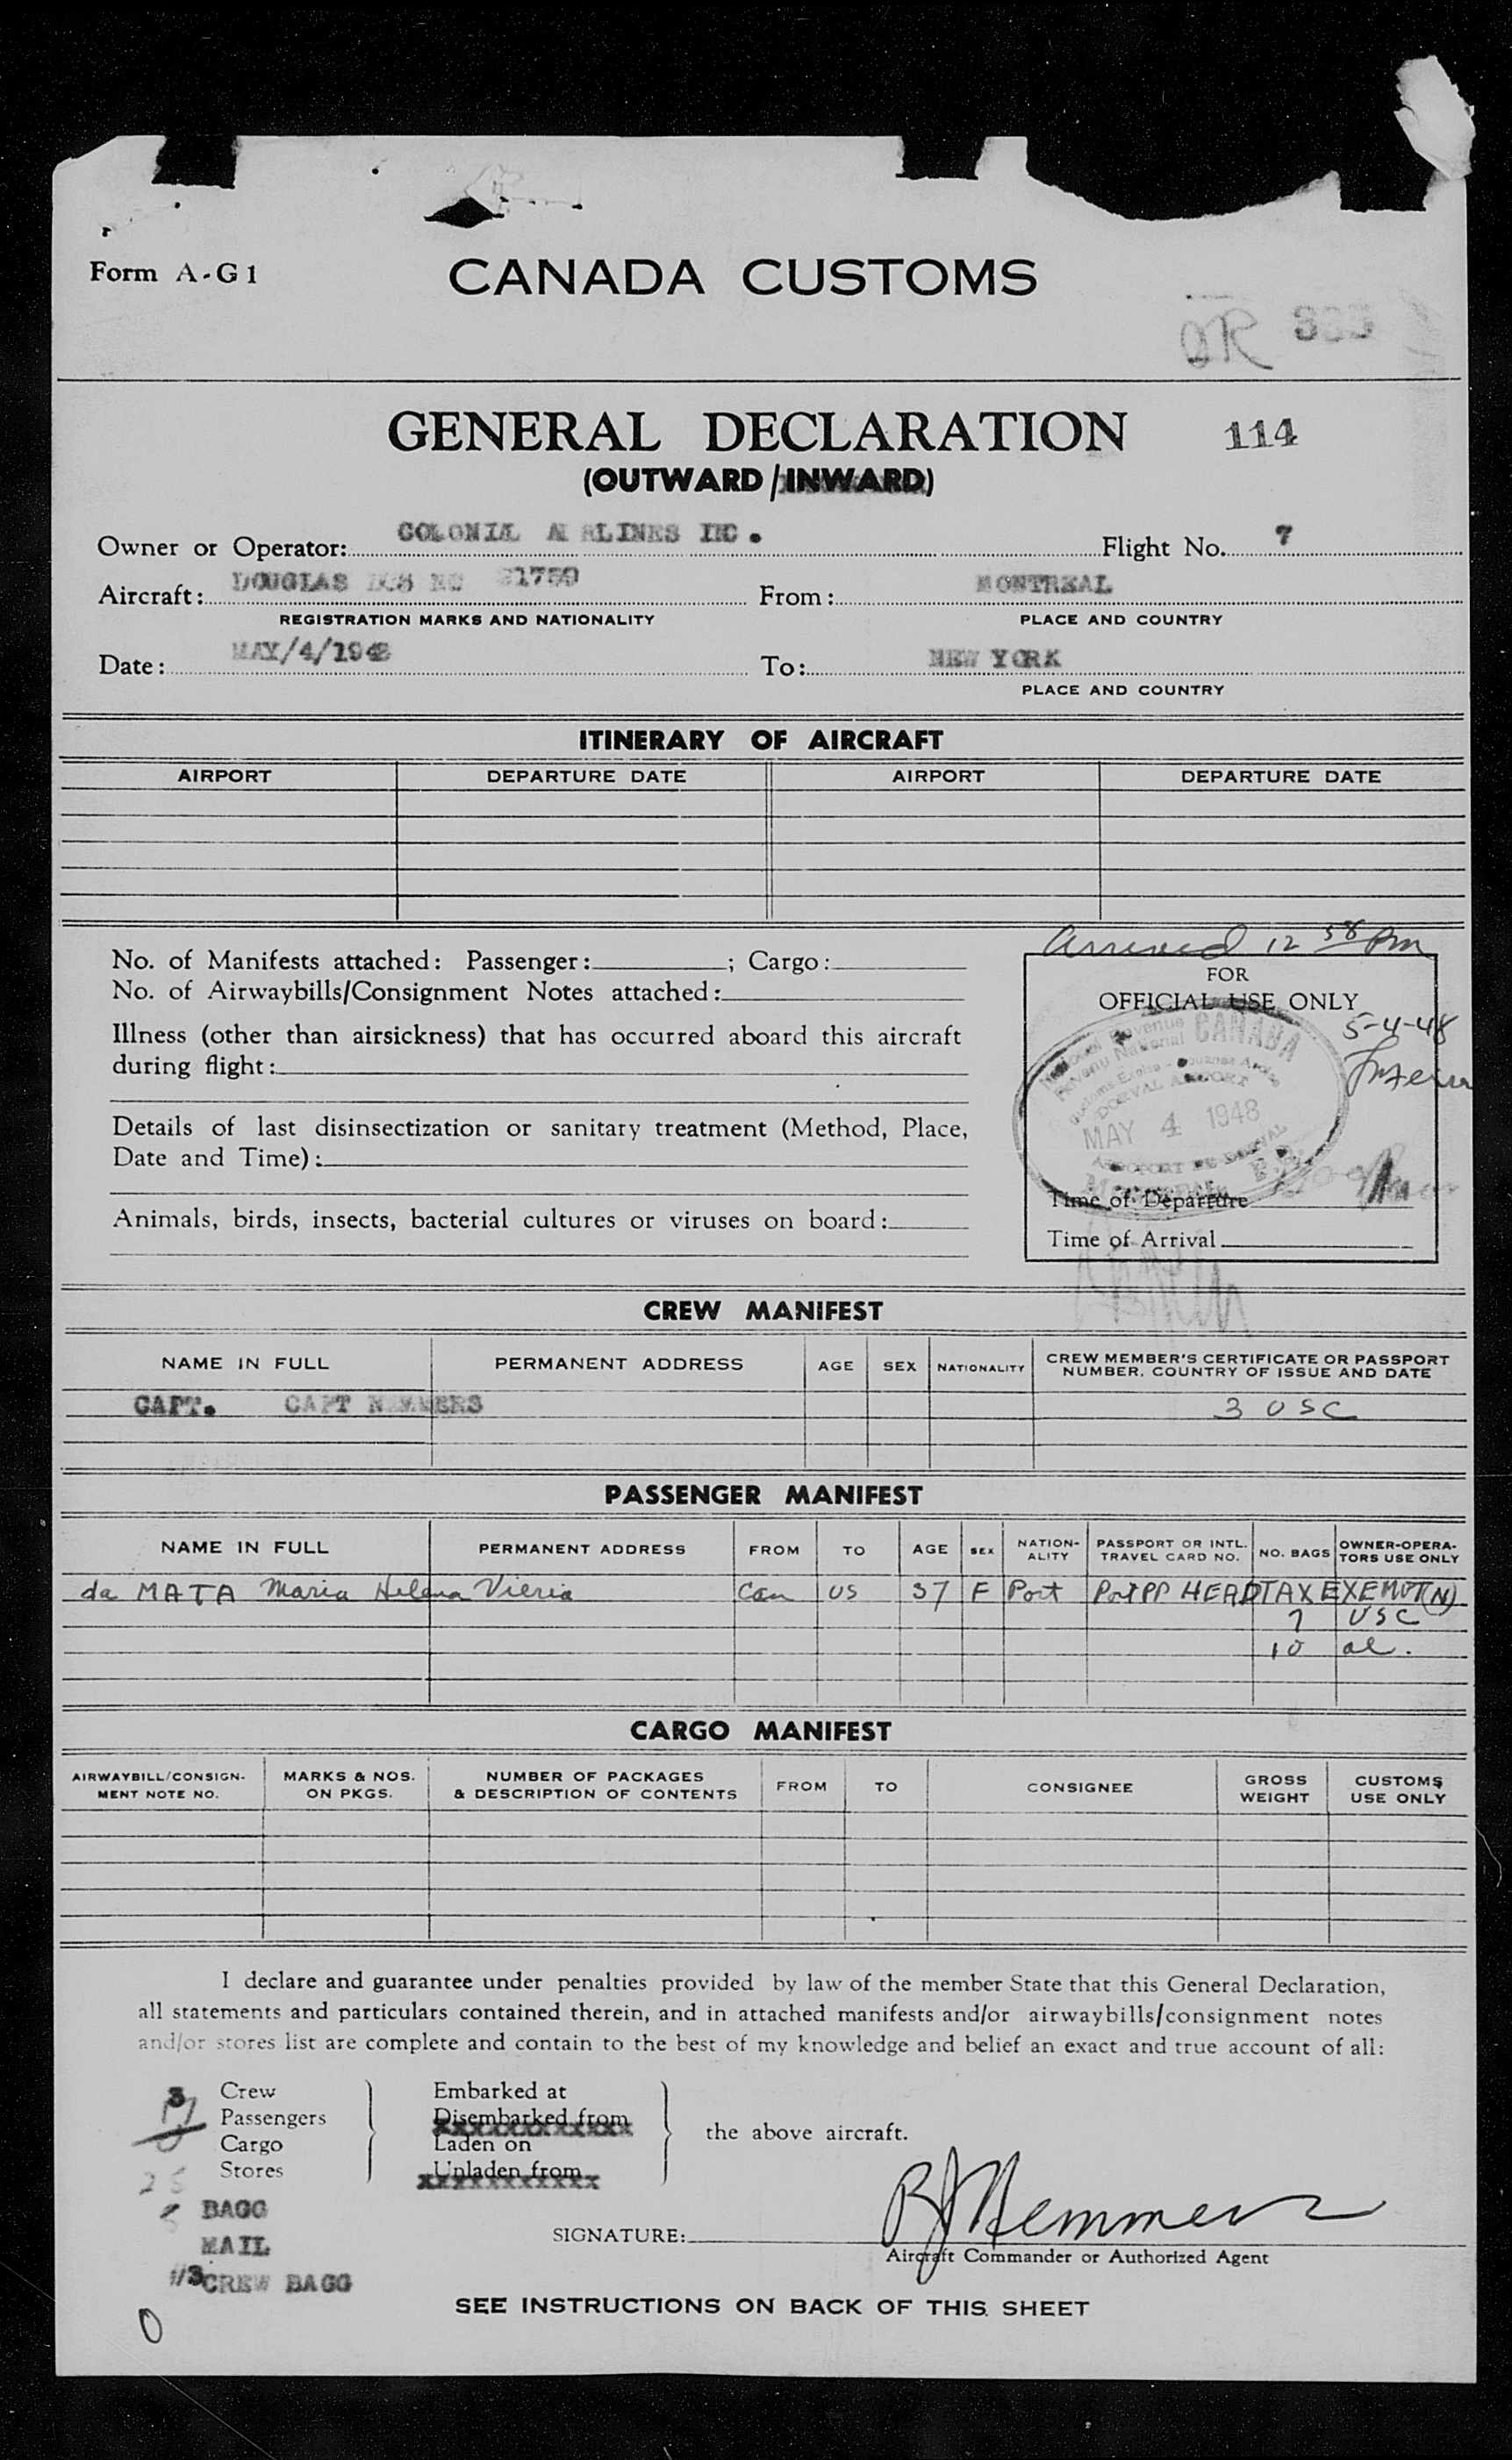 Form A-G1
CANADA CUSTOMS
GENERAL DECLARATION 114
(OUTWARD/INWARD)
Owner or Operator: COLONIAL AIRLINES INC. Flight No. 7
Aircraft: DOUGLAS NC 21759 From: MONTREAL
REGISTRATION MARKS AND NATIONALITY PLACE AND COUNTRY
Date: MAY/4/1948 To: NEW YORK
PLACE AND COUNTRY
ITINERARY OF AIRCRAFT
AIRPORT DEPARTURE DATE AIRPORT DEPARTURE DATE
Arrived 12 58 Pm
No. of Manifests attached: Passenger: ; Cargo:
No. of Airwaybills/Consignment Notes attached:
Illness (other than airsickness) that has occurred aboard this aircraft
during flight:
Details of last disinsectization or sanitary treatment (Method, Place,
Date and Time):
Animals, birds, insects, bacterial cultures or viruses on board:
FOR
OFFICIAL USE ONLY
5-4-48
CANADA
Revenu National
DORVAL AIRPORT
MAY 4 1948
Time of Departure
Time of Arrival
CREW MANIFEST
NAME IN FULL PERMANENT ADDRESS AGE SEX NATIONALITY CREW MEMBER'S CERTIFICATE OR PASSPORT NUMBER, COUNTRY OF ISSUE AND DATE
CAPT. CAPT NEMMERS 3 USC
PASSENGER MANIFEST
NAME IN FULL PERMANENT ADDRESS FROM TO AGE SEX NATION-ALITY PASSPORT OR INTL. TRAVEL CARD NO. NO. BAGS OWNER-OPERA-TORS USE ONLY
da MATA Maria Helena Vieria Can US 37 F Port Port PP HEADTAX EXEMPT (N)
7 USC
10 al.
CARGO MANIFEST
AIRWAYBILL/CONSIGN-MENT NOTE NO. MARKS & NOS. ON PKGS. NUMBER OF PACKAGES & DESCRIPTION OF CONTENTS FROM TO CONSIGNEE GROSS WEIGHT CUSTOMS USE ONLY
I declare and guarantee under penalties provided by law of the member State that this General Declaration,
all statements and particulars contained therein, and in attached manifests and/or airwaybills/consignment notes
and/or stores list are complete and contain to the best of my knowledge and belief an exact and true account of all:
3 Crew Embarked at
17 Passengers Disembarked from
Cargo Laden on
Stores Unladen from
the above aircraft.
BAGG
MAIL
3 CREW BAGG
SIGNATURE: Nemmers
Aircraft Commander or Authorized Agent
SEE INSTRUCTIONS ON BACK OF THIS SHEET